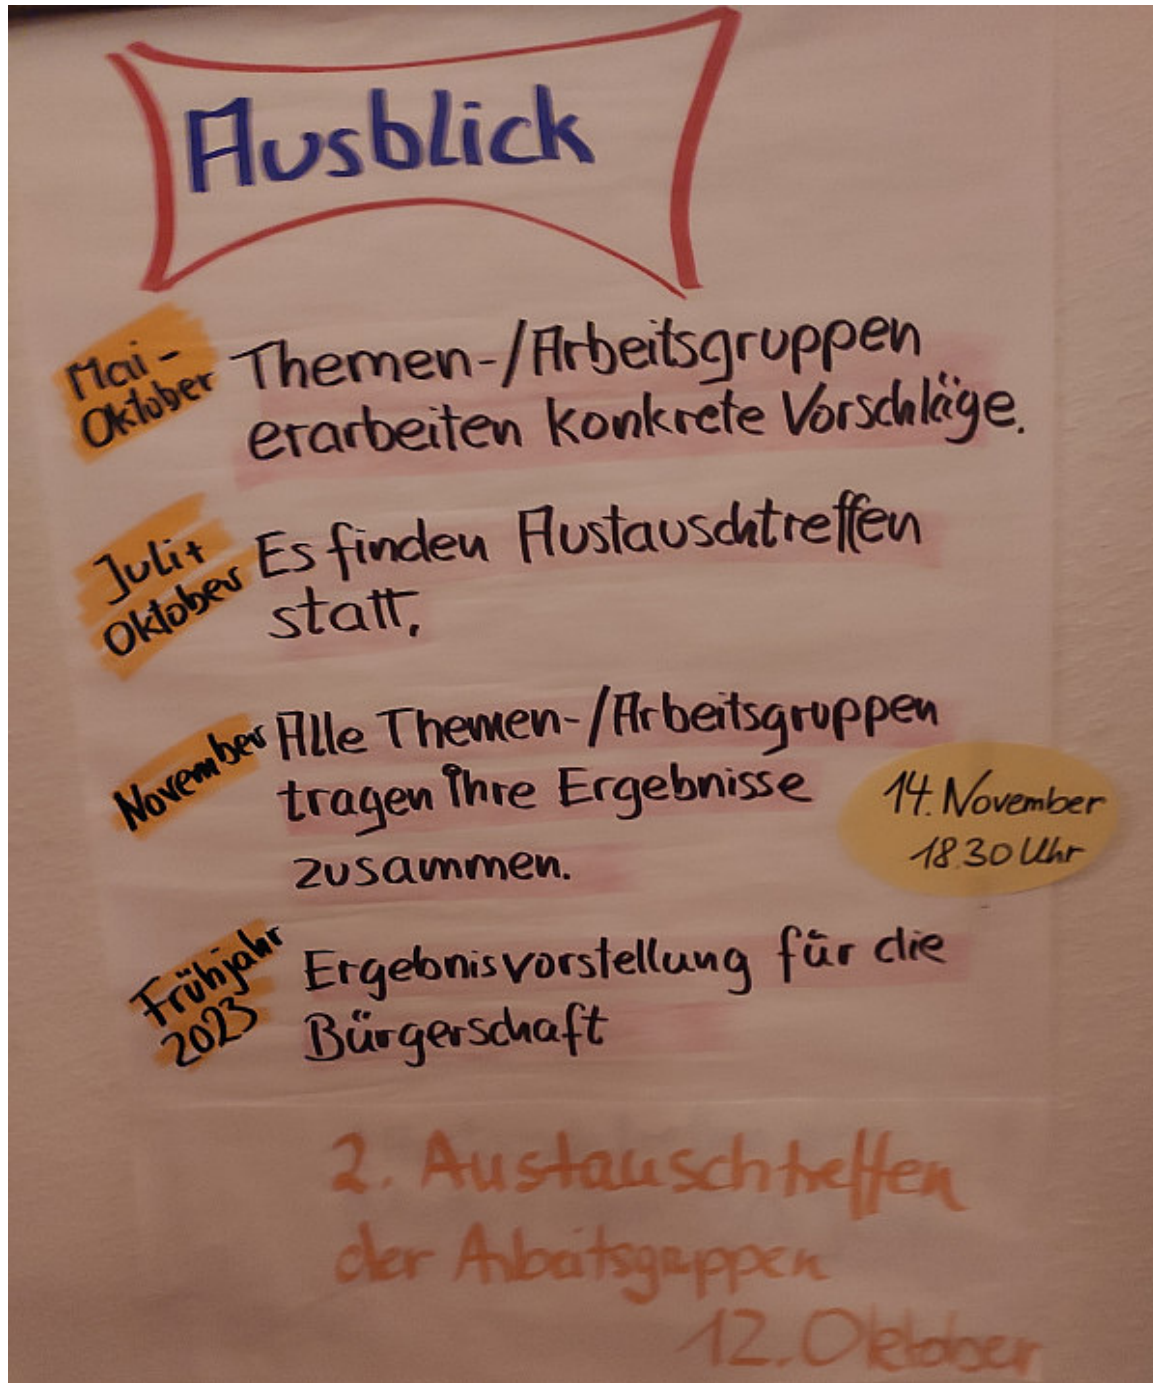 Ausblick
Mai-
Oktober
Themen-/Arbeitsgruppen
erarbeiten konkrete Vorschläge.
Juli+
Oktober
Es finden Austauschtreffen
statt.
November
Alle Themen-/Arbeitsgruppen
tragen ihre Ergebnisse
zusammen.
14. November
18.30 Uhr
Frühjahr
2023
Ergebnisvorstellung für die
Bürgerschaft
2. Austauschtreffen
der Arbeitsgruppen
12. Oktober